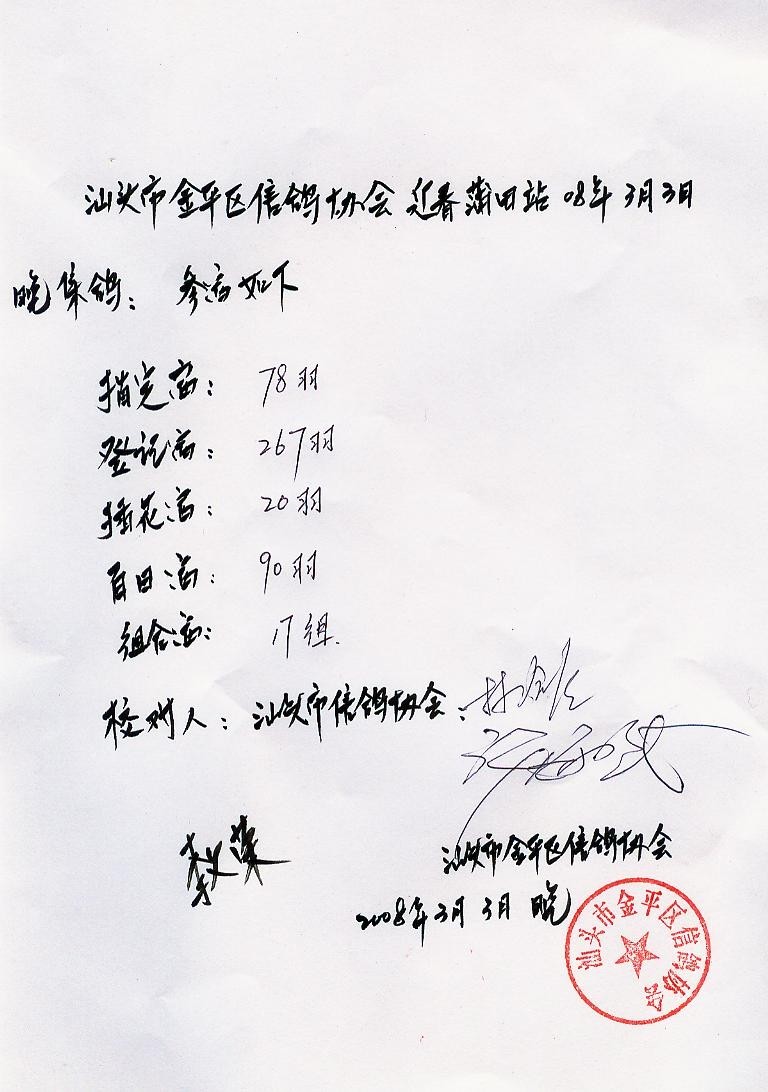 汕头市金平区信鸽协会迎春莆田站08年3月3日
晚集鸽：参赛如下
指定赛：78羽
登记赛：267羽
插花赛：20羽
百日赛：90羽
组合赛：17组.
校对人：汕头市信鸽协会：
汕头市金平区信鸽协会
2008年3月3日晚
汕头市金平区信鸽协会